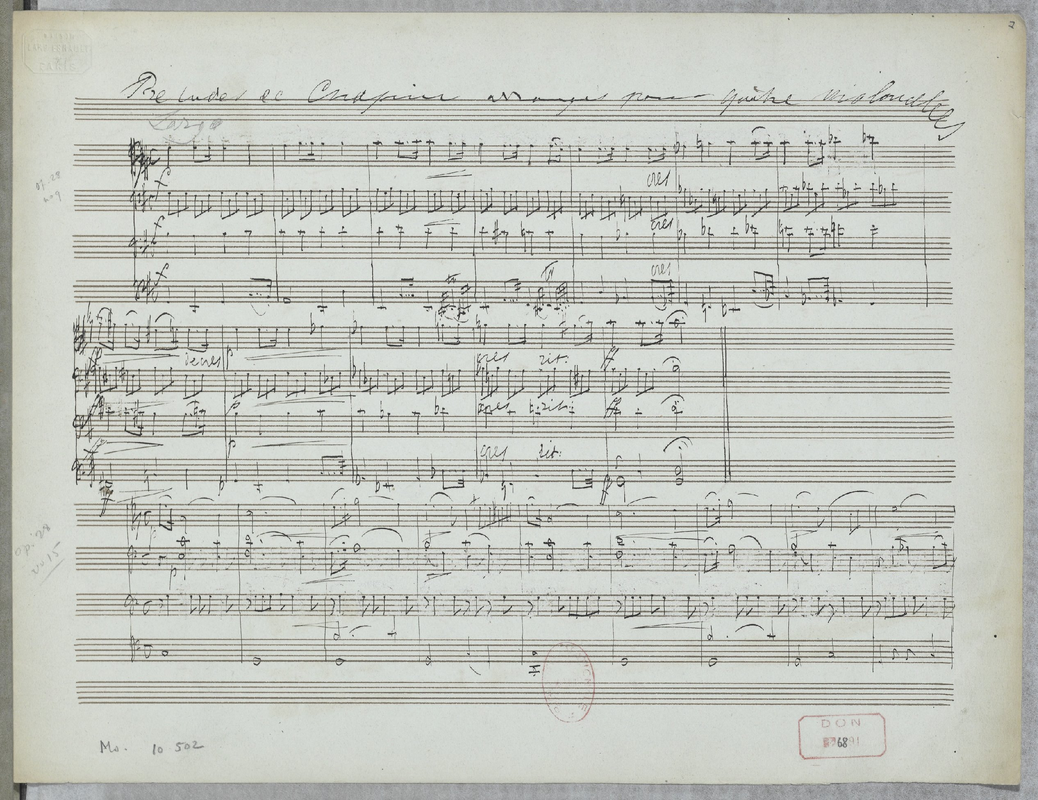 2
Preludes de Chopin arranges pour quatre violoncelles
Largo
op. 28
no 9
f
f
f
cres
cres
cres
decres
p
cres rit:
ff
p
cres rit:
ff
cres rit:
ff
op. 28
no 15
p
Mo. 10 502
DON